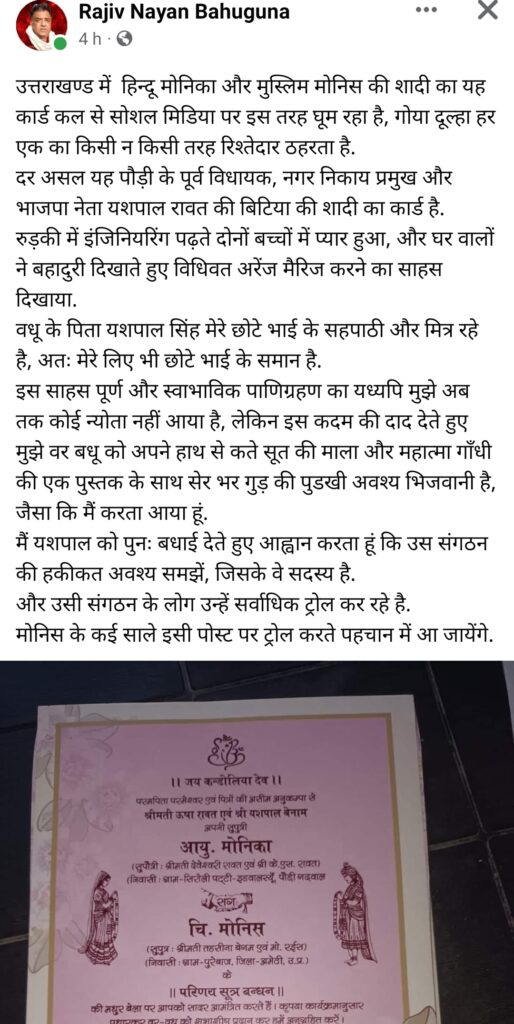 Rajiv Nayan Bahuguna
4 h ·
उत्तराखण्ड में हिन्दू मोनिका और मुस्लिम मोनिस की शादी का यह
कार्ड कल से सोशल मिडिया पर इस तरह घूम रहा है, गोया दूल्हा हर
एक का किसी न किसी तरह रिश्तेदार ठहरता है.
दर असल यह पौड़ी के पूर्व विधायक, नगर निकाय प्रमुख और
भाजपा नेता यशपाल रावत की बिटिया की शादी का कार्ड है.
रुड़की में इंजिनियरिंग पढ़ते दोनों बच्चों में प्यार हुआ, और घर वालों
ने बहादुरी दिखाते हुए विधिवत अरेंज मैरिज करने का साहस
दिखाया.
वधू के पिता यशपाल सिंह मेरे छोटे भाई के सहपाठी और मित्र रहे
है, अतः मेरे लिए भी छोटे भाई के समान है.
इस साहस पूर्ण और स्वाभाविक पाणिग्रहण का यध्यपि मुझे अब
तक कोई न्योता नहीं आया है, लेकिन इस कदम की दाद देते हुए
मुझे वर बधू को अपने हाथ से कते सूत की माला और महात्मा गाँधी
की एक पुस्तक के साथ सेर भर गुड़ की पुडखी अवश्य भिजवानी है,
जैसा कि मैं करता आया हूं.
मैं यशपाल को पुनः बधाई देते हुए आह्वान करता हूं कि उस संगठन
की हकीकत अवश्य समझें, जिसके वे सदस्य है.
और उसी संगठन के लोग उन्हें सर्वाधिक ट्रोल कर रहे है.
मोनिस के कई साले इसी पोस्ट पर ट्रोल करते पहचान में आ जायेंगे.
।। जय कन्डोलिया देव ।।
परमपिता परमेश्वर एवं पित्रों की असीम अनुकम्पा से
श्रीमती ऊषा रावत एवं श्री यशपाल बेनाम
अपनी सुपुत्री
आयु. मोनिका
(सुपौत्री : श्रीमती देवेश्वरी रावत एवं श्री के.एस. रावत)
(निवासी : ग्राम-सिरोली पट्टी-इडवालस्यूँ, पौड़ी गढ़वाल
संग
चि. मोनिस
(सुपुत्र : श्रीमती तहसीना बेगम एवं मो. रईस)
(निवासी : ग्राम-पुरेबाज, जिला-अमेठी, उ.प्र.)
के
।। परिणय सूत्र बन्धन ।।
की मधुर बेला पर आपको सादर आमंत्रित करते हैं। कृपया कार्यक्रमानुसार
पधारकर वर-वधू को शुभाशीष प्रदान कर हमें अनुग्रहित करें।